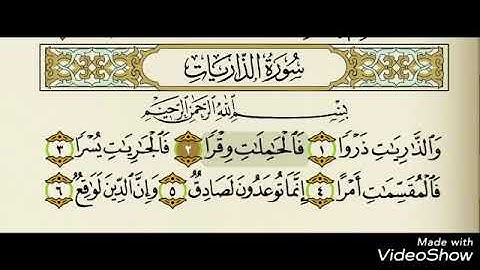 سُورَةُ الذَّارِيَاتِ
بِسْمِ اللَّهِ الرَّحْمَٰنِ الرَّحِيمِ
وَالذَّارِيَاتِ ذَرْوًا ١ فَالْحَامِلَاتِ وِقْرًا ٢ فَالْجَارِيَاتِ يُسْرًا ٣
فَالْمُقَسِّمَاتِ أَمْرًا ٤ إِنَّمَا تُوعَدُونَ لَصَادِقٌ ٥ وَإِنَّ الدِّينَ لَوَاقِعٌ ٦
Made with
VideoShow